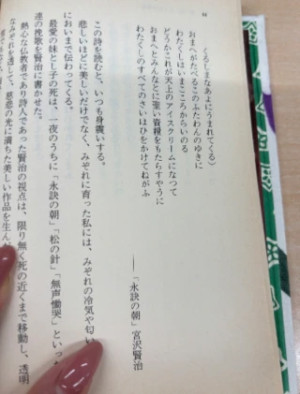 94
くるしまなあよにうまれてくる)
おまへがたべるこのふたわんのゆきに
わたくしはいまこころからいのる
どうかこれが天上のアイスクリームになつて
おまへとみんなとに聖い資糧をもたらすやうに
わたくしのすべてのさいはひをかけてねがふ
――「永訣の朝」宮沢賢治
この詩を読むと、いつも身震いする。
悲しいほどに美しいだけでなく、みぞれに育った私には、みぞれの冷気や匂い
においまで伝わってくる。
最愛の妹とし子の死は、一夜のうちに「永訣の朝」「松の針」「無声慟哭」といった
連の挽歌を賢治に書かせた。
熱心な仏教者であり詩人であった賢治の視点は、限り無く死の近くまで移動し、透明
なみぞれを通して、慈悲の光に満ちた美しい作品を生ん